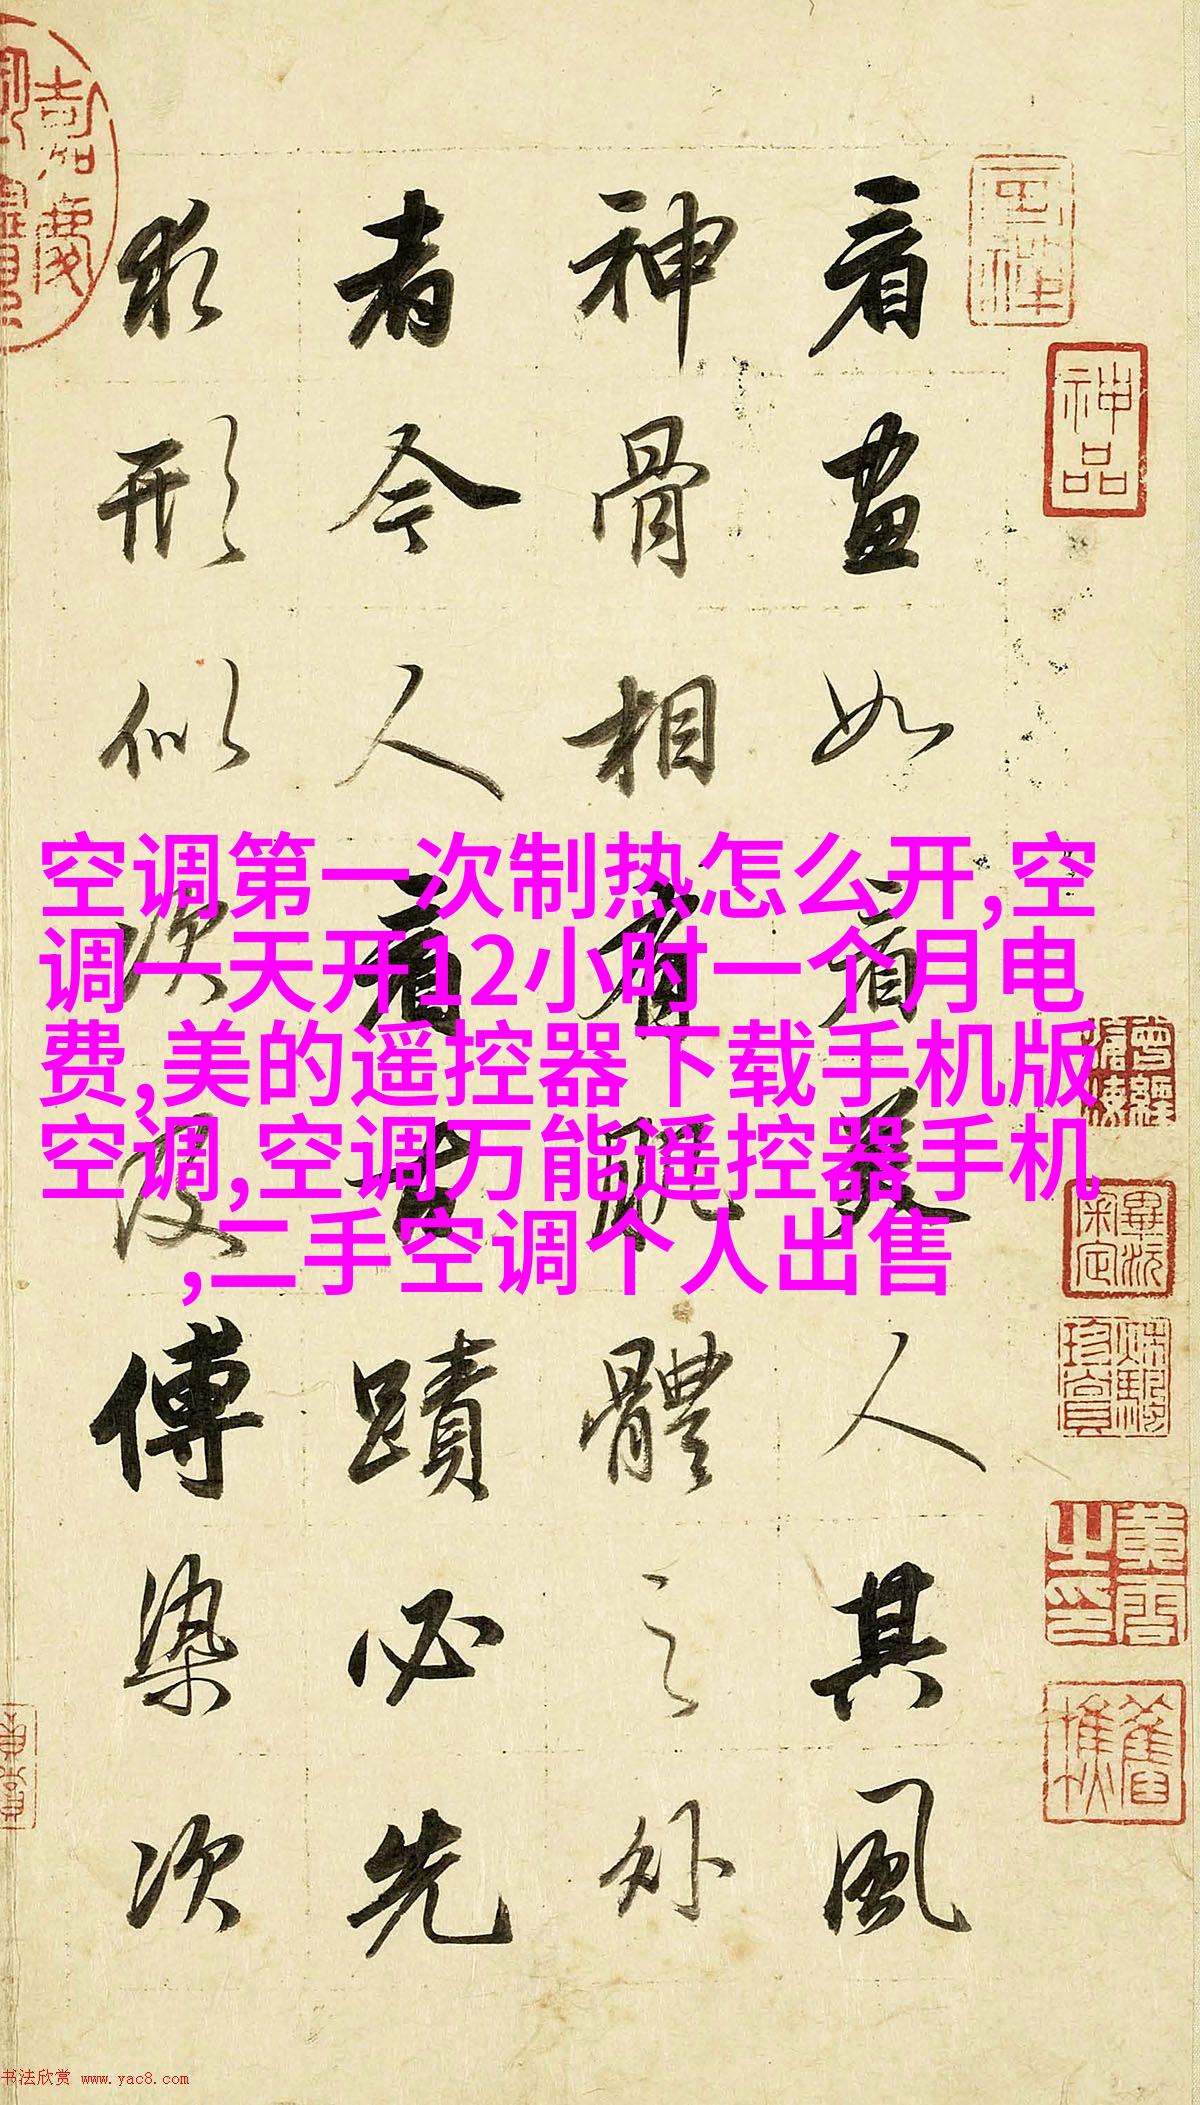 看畫如看美人其風
神骨相有肌體之外
者今人看古蹟必先
求形似次及傅染次
神品
空调第一次制热怎么开,空
调一天开12小时一个月电
费,美的遥控器下载手机版
空调,空调万能遥控器手机
,二手空调个人出售
书法欣赏 www.yac8.com